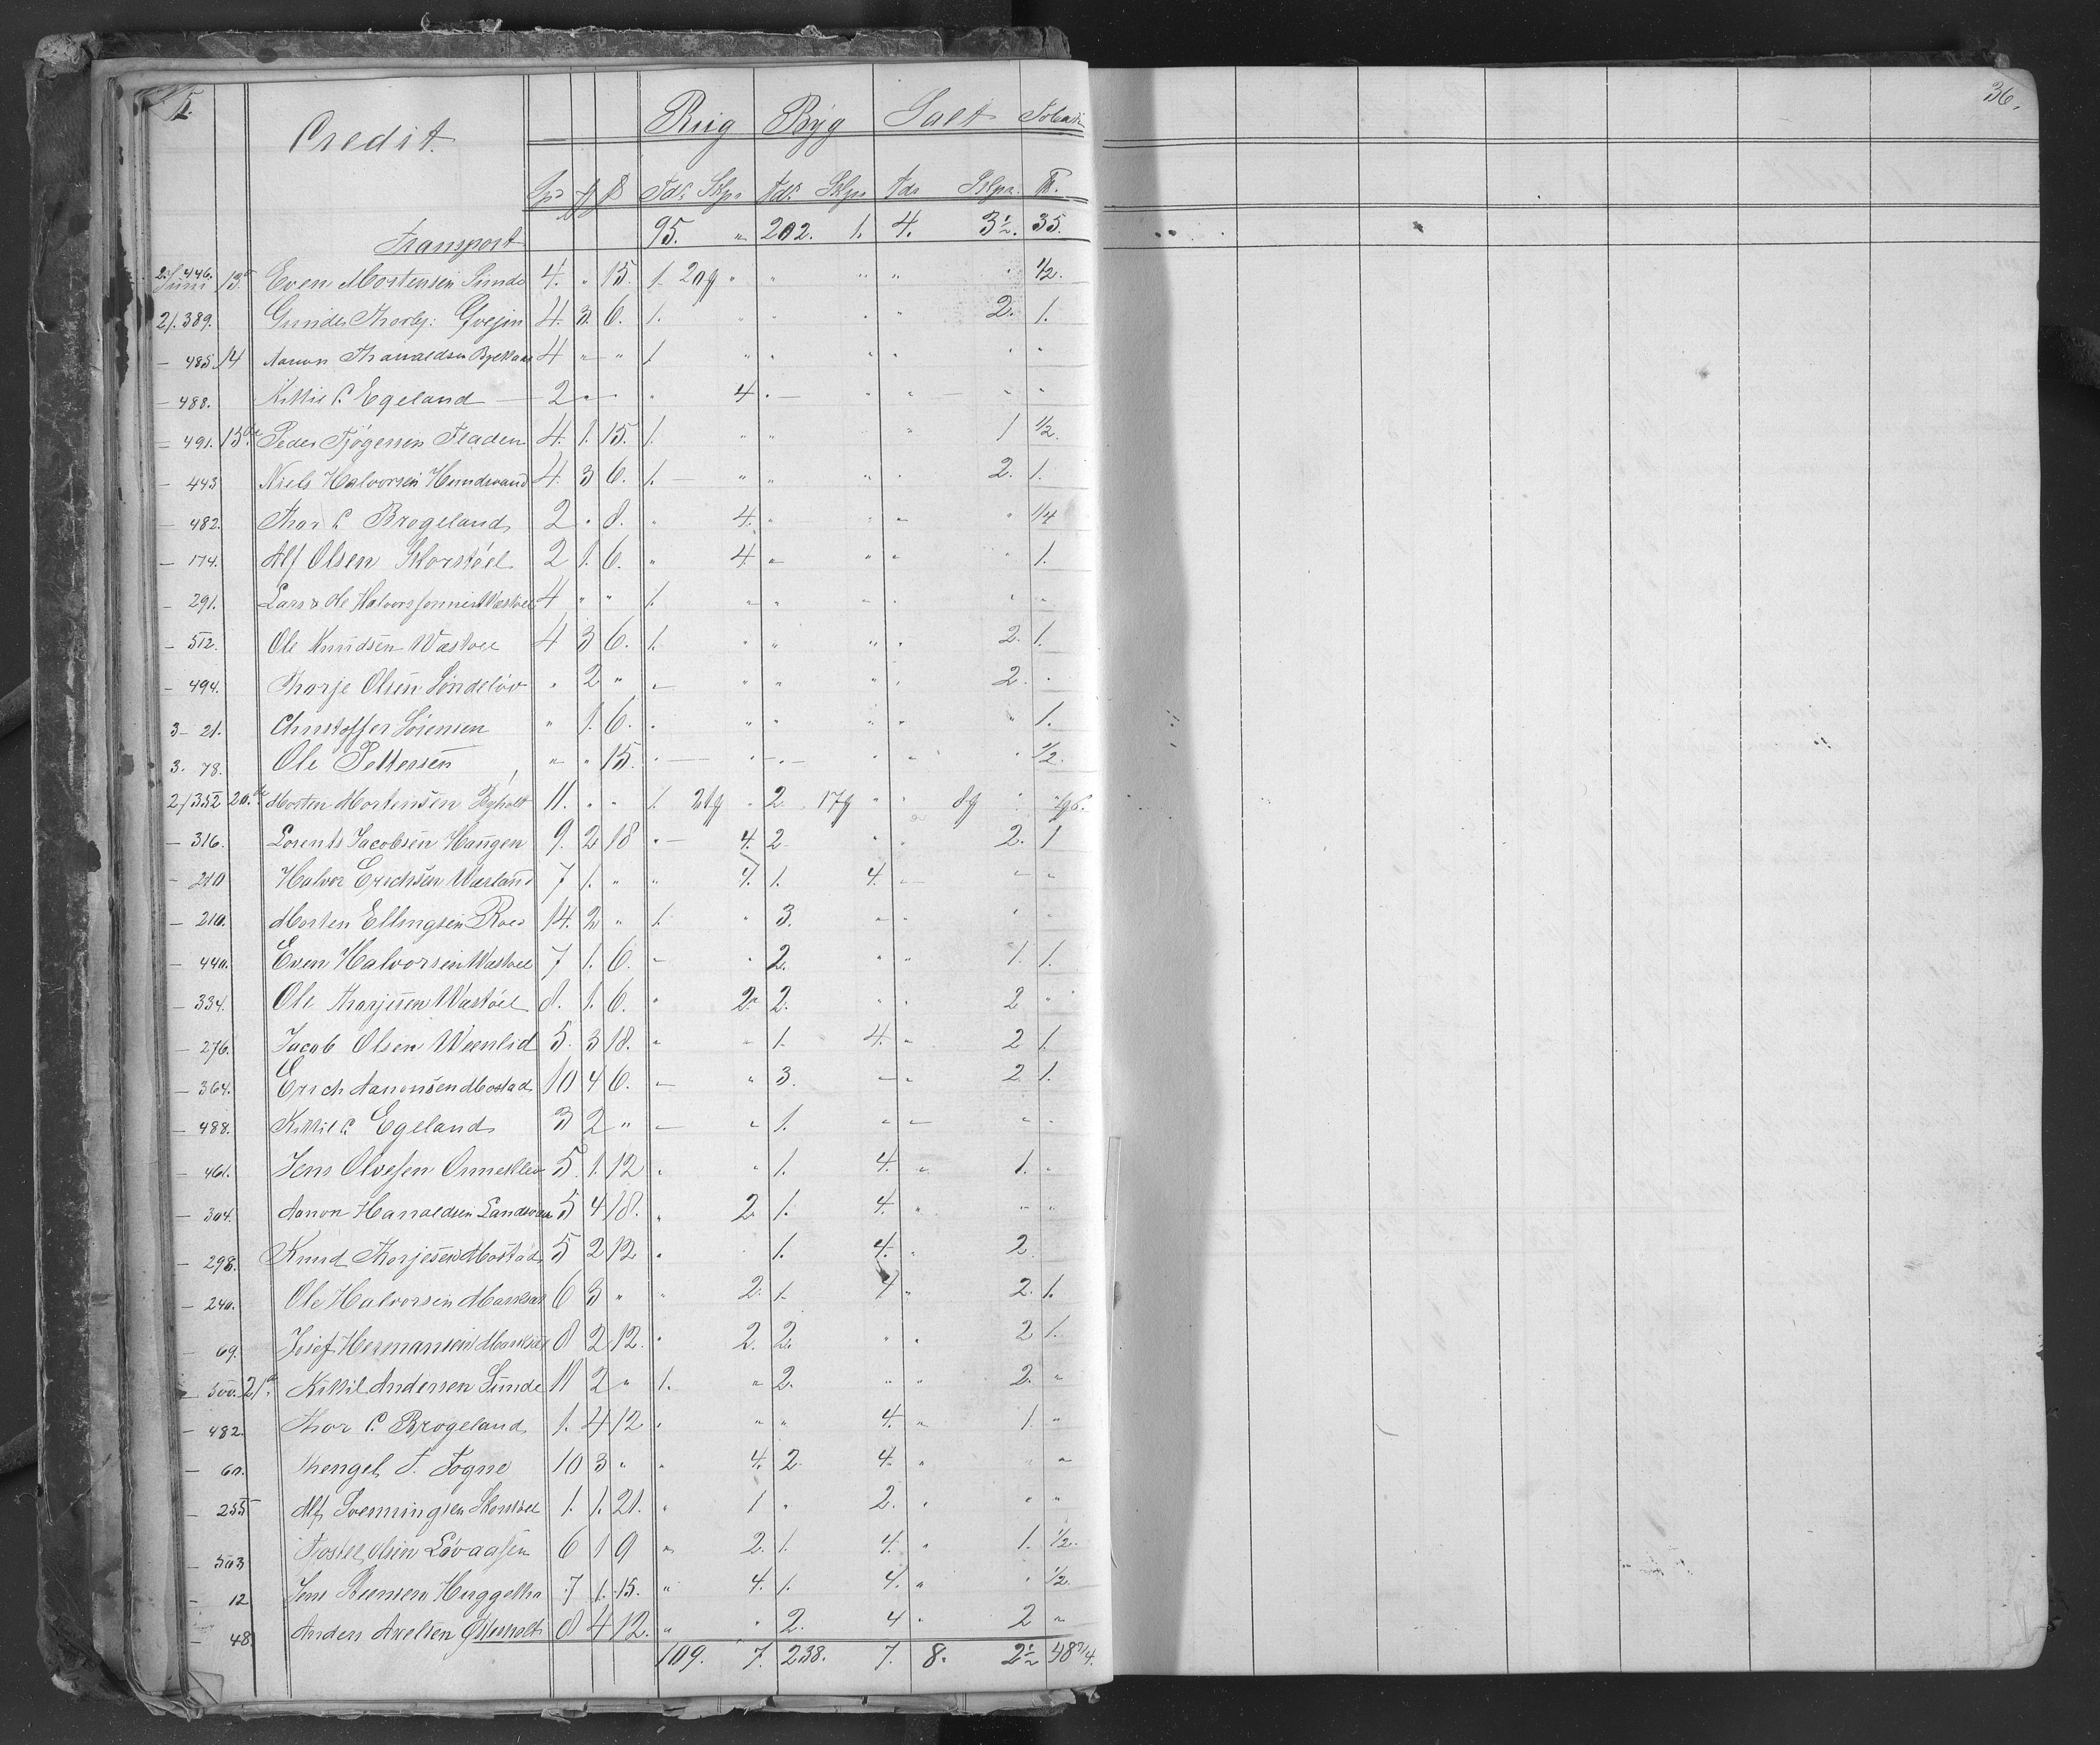 5.
Credit. Rug Byg Salt Tobak
Spd ß Tdr Skpr Tdr Skpr Tdr Skpr ℔.
Transport 95. " 202. 1. 4. 3½. 35.
2/446. Juni 13de Even Mortensen Sunde 4. " 15. 1. 20q " " " " " ½.
2/389. Gunder Thorbj: Gvejen 4. 3. 6. 1. " " " " 2. 1.
- 485. 14 Aanon Thanaldsen 4 " " 1. " " " " " "
- 488. Kittil C. Egeland 2 " " " 4. " " " " "
- 491. 15de Peder Tjøgersen Fladen 4. 1. 15. 1. " " " 1 ½.
- 443 Niels Halvorsen Hundsvand 4. 3 6. 1. " " " " 2. 1.
- 482. Thor C. Brogeland 2 " 8. " 4. " " " " ¼
- 174. Alf Olsen Skorstöel 2 1. 6. " 4. " " " " 1.
- 291. Lars & Ole Halvorssønner Wastöel 4 " " 1. " " " " " "
- 512. Ole Knudsen Wastöel 4 3 6. 1. " " " " 2. 1.
- 494. Thorje Olsen Søndeløv " 2 " " " " " " 2. "
3 - 21. Christoffer Sörensen " 1. 6. " " " " " " 1.
3. 78. Ole Pettersen " " 15. " " " " " " ½.
2/352 20de Morten Mortensen 11. " " 1. 21q " 2 17q " " 8q
- 316. Lorents Jacobsen Haugen 9. 2 18 " 4. 2 " " 2. 1
- 210 Halvor Erichsen Wæsland 7 1. " " 4. 1. 4. " " "
- 210. Morten Ellingsen Roed 14. 2 " 1. " 3. " " " "
- 440. Even Halvorsen Wastöel 7 1. 6. " " 2. " " 1. 1.
- 334. Ole Thorjesen Wastöel 8. 1. 6. " 2. 2. " " 2 "
- 276. Jacob Olsen Weenlid 5. 3 18. " " 1. 4. " 2 1.
- 364. Erich Aanonsen Mostad 10 4 6. " " 3. " " 2. 1.
- 488. Kittil C. Egeland 3 2 " " " 1. " " " "
- 461. Jens Olvesen Omeklev 5. 1. 12 " " 1. 4. " 1. "
- 304. Aanon Haraldsen 5 4 18. " 2. 1. 4. " " "
- 298. Knud Thorjesen Mostad 5 2 12 " " 1. 4. " 2.
- 240. Ole Halvorsen 6 3 " " 2. 1. 4 " 2. 1.
- 69. Josef Hermansen 8 2 12. " 2. 2. " " 2 1.
- 500. 21de Kittil Andersen Sunde 11 2 " 1. " 2. " " 2. "
- 482. Thor C. Brogeland 1. 4 12 " " " 4. " 1. "
- 60. Thengel T. Fogne 10 3 " " 4. 2. 4. " " "
- 255 Alf Svenningsen Skorstöel 1. 1. 21. " 1 " 2. " " "
- 503 Tjostel Olsen Lövaasen 6 1 9 " 2. 1. 4. " 1. ½.
- 12 Jens Steensen 7 1. 15. " 4. 1. 4. " " ½.
- 48 Anders Axelsen Østerholt 8 4 12. " " 2. 4 " 2 "
109. 7. 238. 7. 8. 2½ 48¾.
36.